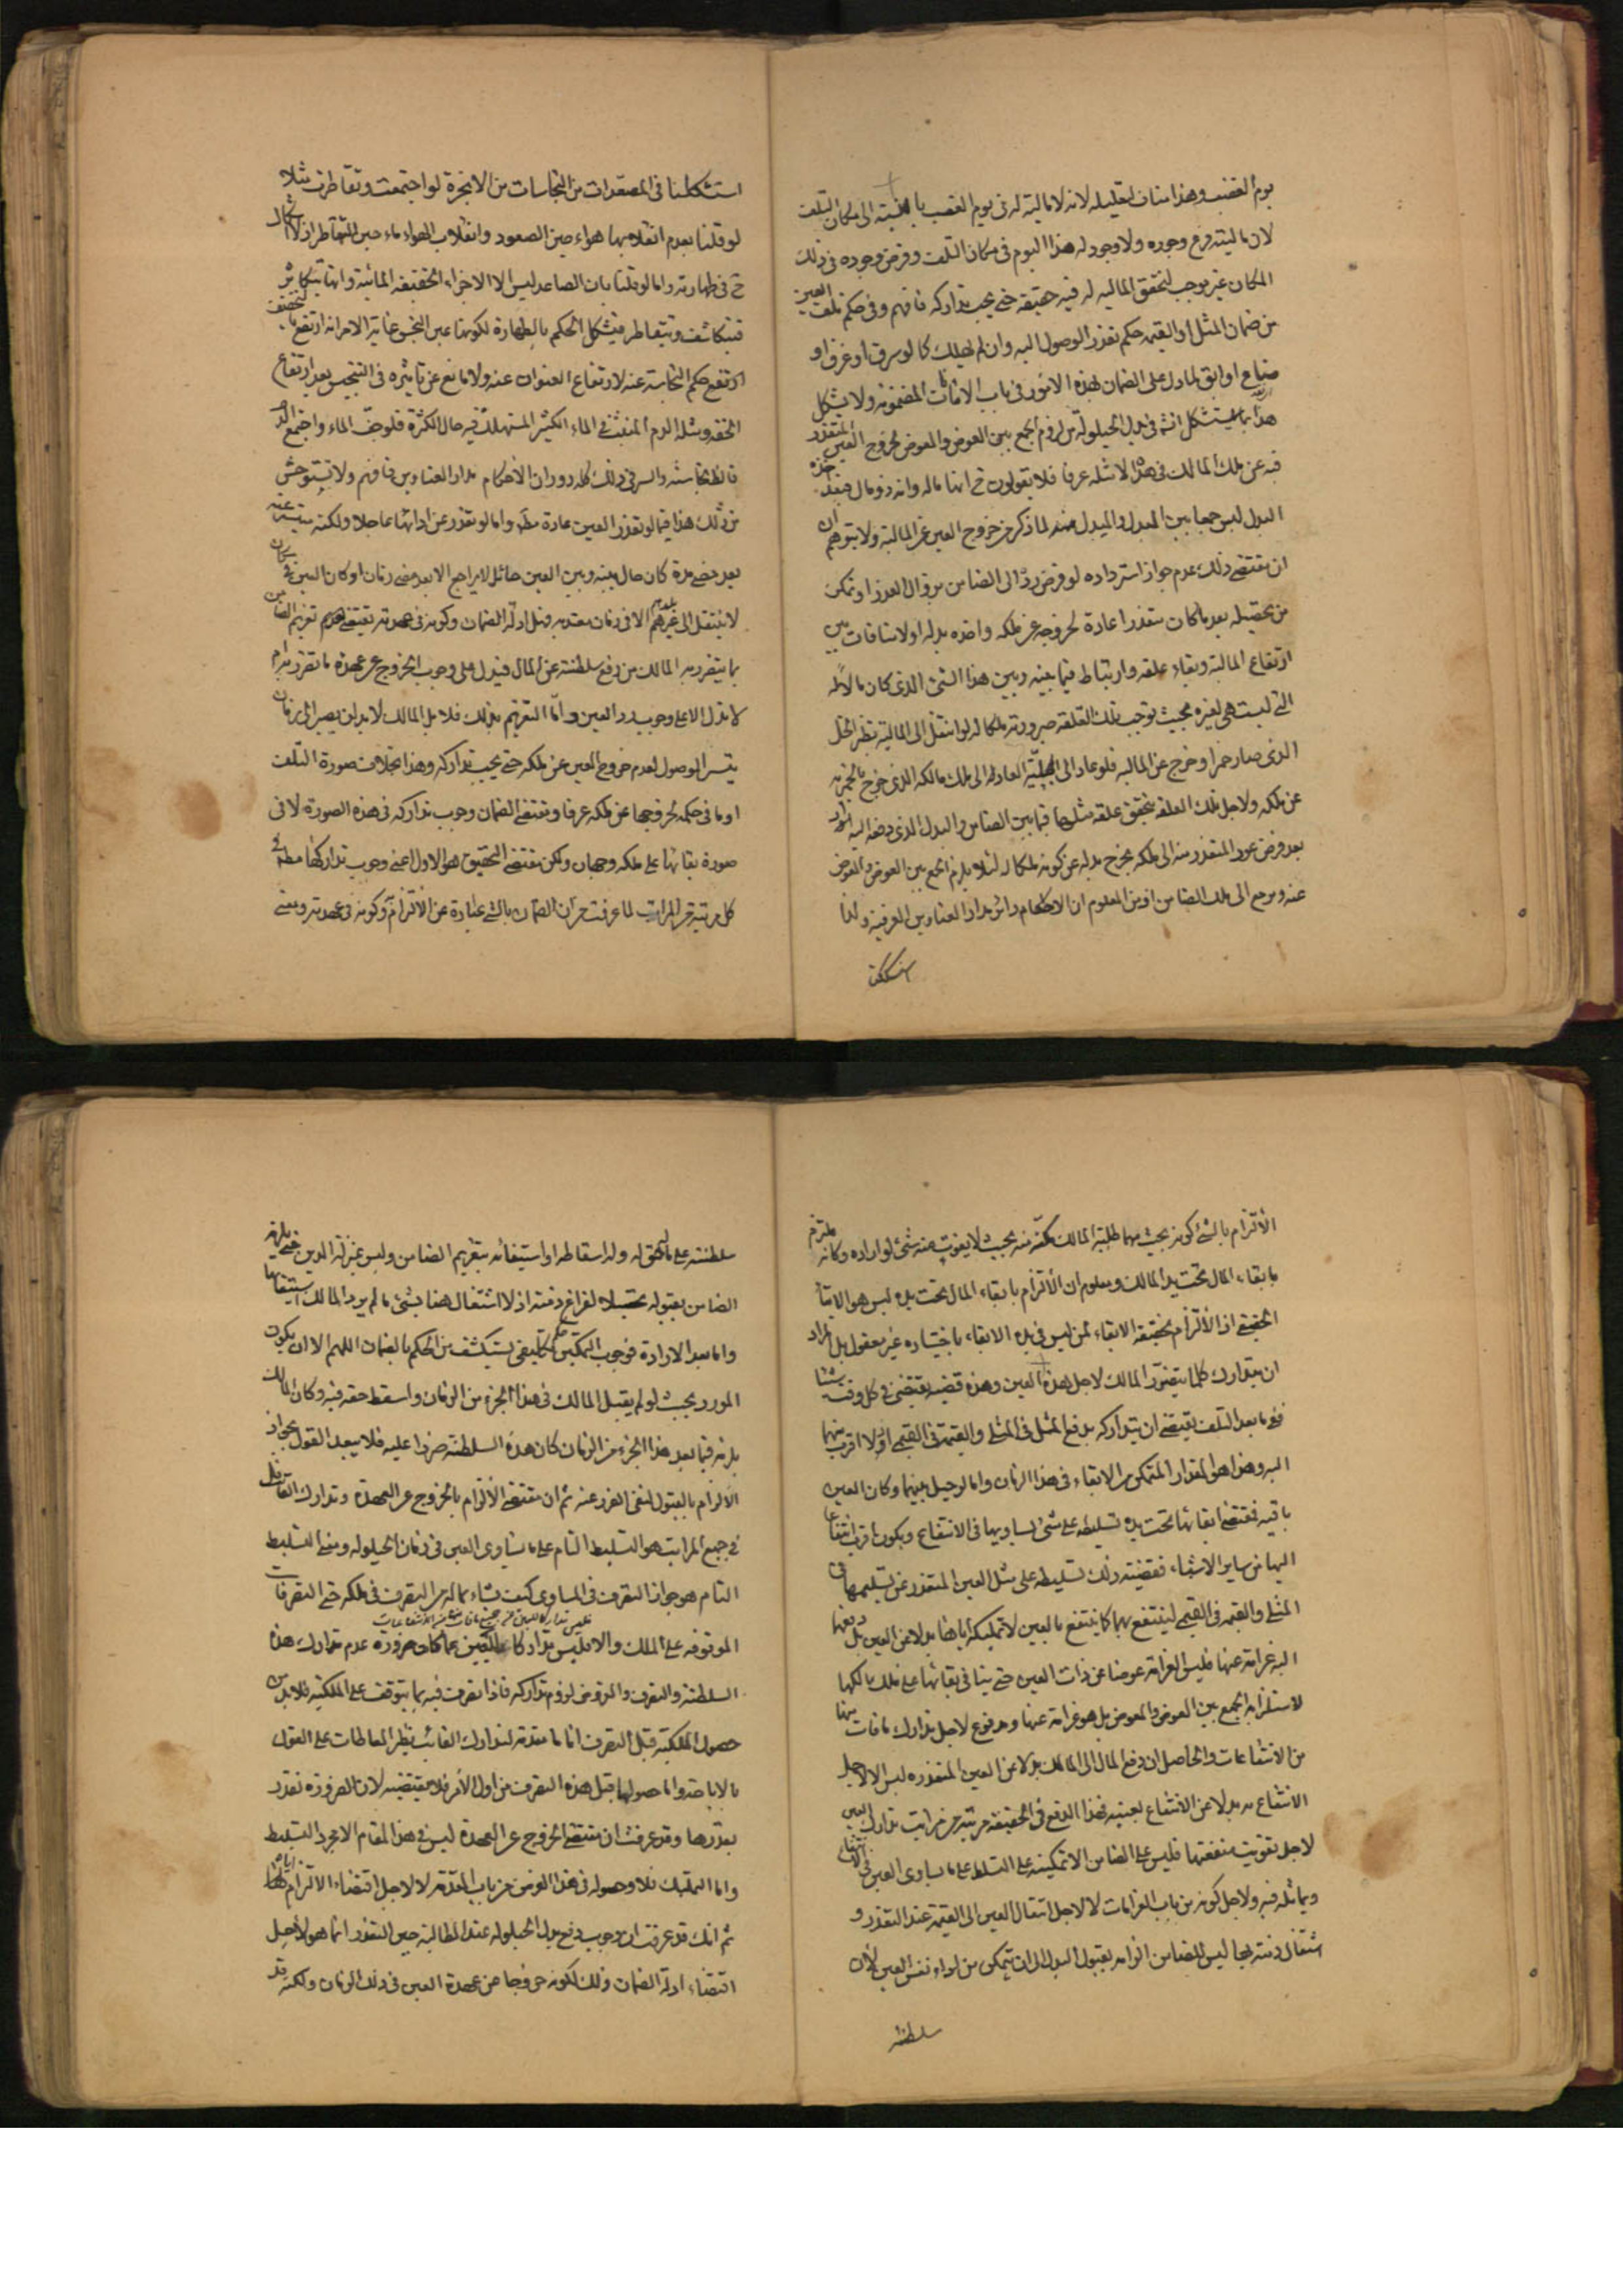 يوم الغصب وهذا مناف لتعليله لانه لا مالية له في يوم الغصب بالنسبة الى مكان التلف
لان ماليته فرع وجوده ولا وجود له هذا اليوم في مكان التلف وفرض وجوده في ذلك
المكان غير موجب لتحقق المالية له فيه حقيقة حتى يجب تداركه فافهم وفي حكم تلف العين
من ضمان المثل او القيمة حكم تعذر الوصول اليه وان لم يهلك كما لو سرق او غرق او
ضاع او ابق لما دل على الضمان بهذه الامور في باب الامانات المضمونة ولا يشكل
هذا بما استشكل في بدل الحيلولة من لزوم الجمع بين العوض والمعوض لخروج العين المتعذر
فيه عن ملك المالك في مثله عرفا فلا يقولون ح انها ماله وانه ذو مال فبعد اخذه
البدل ليس جمعا بين البدل والمبدل منه لما ذكر من خروج العين عن المالية ولا يتوهم ان
ان مقتضى ذلك عدم جواز استرداده لو فرض رد الى الضامن بزوال العذر او تمكن
من تحصيله بعد ما كان متعذرا عادة لخروجه عن ملكه واخذه بدله اولا منافات بين
ارتفاع المالية وبقاء علقة وارتباط فيما بينه وبين هذا الشئ الذي كان مالا له
التي ليست هي لغيره بحيث توجب تلك العلقة صيرورته ملكا له لو انتقل الى المالية نظير الخل
الذي صار خمرا وخرج عن المالية فلو عاد الى الخلية العاد الى ملك مالكه الذي خرج بالخمرية
عن ملكه ولاجل تلك العلقة يتحقق علقة مثلها فيما بين الضامن والبدل الذي دفعه اليه
بعد فرض عود المتعذر منه الى ملكه يخرج بدله عن كونه ملكا له لئلا يلزم الجمع بين العوض والمعوض
عنه ويرجع الى ملك الضامن اذ من المعلوم ان الاحكام دائر مدار العناوين العرفية ولذا
استشكلنا
استشكلنا في المصعدات من النجاسات من الابخرة لو اجتمعت وتقاطرت مثلا
لو قلنا بعدم انقلابها هواء حين الصعود وانقلاب الهواء ماء حين التقاطر اذ لا اشكال
ح في طهارته واما لو قلنا بان الصاعد ليس الا الاجزاء الحقيقة المائية وانها تتكاثر
فتتكاثف وتتقاطر فيشكل الحكم بالطهارة لكونها عين النجس غاية الامر انه ارتفع
ارتفع حكم النجاسة عنه لارتفاع العنوان عنه ولا مانع عن تاثيره في التنجيس بعد ارتفاع
الخفة ومثله الدم المنبث في الماء الكثير المستهلك فيه حال الكثرة فلو جف الماء واجتمع الدم
فالظ نجاسته والسر في ذلك كله دوران الاحكام مدار العناوين فافهم ولا تستوحش
من ذلك هذا فيما لو تعذر العين عادة مط واما لو تعذر عن ادائها عاجلا ولكنه
بعد مضي مدة كان حال بينه وبين العين حائل لا يراجع الا بعد مضي زمان او كان العين في مكان
لا ينتقل الى غيره الا في زمان معتد به فهل ادلة الضمان وكونه في عهدته يقتضي تغريم الضامن
بما يتضرر به المالك من رفع سلطنته عن المال فيدل على وجوب الخروج عن عهدة ما تضرر به ام
لا تدل الا على وجوب رد العين واما التغريم بذلك فلا بل المالك لا بد ان يصبر الى زمان
يتيسر الوصول لعدم خروج العين عن ملكه حتى يجب تداركه وهذا بخلاف صورة التلف
او ما في حكمه لخروجها عن ملكه عرفا ومقتضى الضمان وجوب تداركه في هذه الصورة لا في
صورة بقائها على ملكه وجهان ولكن مقتضى التحقيق هو الاول اعني وجوب تداركها مط في
كل مرتبة من المراتب لما عرفت من ان الضمان بالشئ عبارة عن الالتزام وكونه في عهدته ومعنى
الالتزام بالشئ كونه بحيث مهما طلبه المالك مكنه منه بحيث لا يفوت منه شئ لو اراده وكانه ملتزم
بابقاء المال تحت يد المالك ومعلوم ان الالتزام بابقاء المال تحت يده ليس هو الابقاء
الحقيقي اذ الالتزام بحقيقة الابقاء لمن ليس في يده الابقاء باختياره غير معقول بل المراد
ان يتدارك كلما يتضرر المالك لاجل هذه العين وهذه قضية يقتضي في كل وقت شيئا
فح ما بعد التلف يقتضي ان يتداركه بدفع المثل في المثلي والقيمة في القيمي اذ لا اقرب منهما
اليه وهذا هو المقدار المتمكن من الابقاء في هذا الزمان واما لو حيل بينهما وكان العين
باقية فمقتضى ابقائها تحت يده تسليطه على شئ يساويها في الانتفاع ويكون اقرب انتفاعا
اليها من ساير الاشياء فقضيته ذلك تسليطه على مثل العين المتعذر عن تسليمها في
المثلي والقيمة في القيمي لينتفع بهما كما ينتفع بالعين لا تمليكه اياها بدلا عن العين بل دفعها
اليه غرامة عنها فليس الغرامة عوضا عن ذات العين حتى ينافي بقائها على ملك مالكها
لاستلزامه الجمع بين العوض والمعوض بل هو غرامة عنها ومدفوع لاجل تدارك ما فات منها
من الانتفاعات والحاصل ان دفع المال الى المالك بدلا عن العين المتعذره ليس الا لاجل
الانتفاع به بدلا عن الانتفاع بعينه فهذا الدفع في الحقيقة مرتبة من مراتب تدارك العين
لاجل تفويت منفعتها فليس على الضامن الا تمكينه على التسلط على ما يساوي العين في الانتفاع
ويماثله فيه ولاجل كونه من باب الغرامات لا لاجل انتقال العين الى القيمة عند التعذر و
اشتغال ذمته بها ليس للضامن الزامه بقبول البدل الى ان يتمكن من اداء نفس العين لان
سلطنته
سلطنته على ماله حق له وله اسقاطه او استيفائه بتغريم الضامن وليس بمنزلة الدين حتى يلزمه
الضامن بقبوله تحصيلا لفراغ ذمته اذ لا اشتغال هنا بشئ ما لم يرد المالك استيفائها
واما بعد الارادة فوجوب التمكين تكليفي يستكشف من الحكم بالضمان اللهم الا ان يكون
المورد بحيث لو لم يقبل المالك في هذا الجزء من الزمان واسقط حقه فيه وكان المالك
يلزمه فيما بعد هذا الجزء من الزمان كان هذه السلطنة ضررا عليه فلا يبعد القول بجواز
الالزام بالقبول لنفي الضرر عنه ثم ان مقتضى الالتزام بالخروج عن العهدة وتدارك الفائت
في جميع المراتب هو التسليط التام على ما يساوي العين في زمان الحيلولة ومعنى التسليط
التام هو جواز التصرف في المساوي كيف شاء بماله من التصرف في ملكه حتى التصرفات
فليس تداركا للعين في جميع ما فات منها من الانتفاعات
الموقوفة على الملك والا فليس تداركا للعين ضرورة عدم تدارك هذه
السلطنة والتصرف والمفروض لزوم تداركه فاذا تصرف فيه بما يتوقف على الملكية فلا بد من
حصول الملكية قبل التصرف اناما مقدمة لتدارك الفائت نظير المعاطات على القول
بالاباحة واما حصولها قبل هذه التصرف من اول الامر فلا يقتضيه لان الضرورة تقدر
بقدرها وقد عرفت ان مقتضى الخروج عن العهدة ليس في هذا المقام الا مجرد التسليط
واما التمليك فلا وحصوله في هذا الفرض من باب المقدمة لا لاجل اقتضاء الالتزام اياه
ثم انك قد عرفت ان وجوب دفع بدل الحيلولة عند المطالبة حين التعذر انما هو لاجل
اقتضاء ادلة الضمان وذلك لكونه خروجا عن عهدة العين في ذلك الزمان ولكنه قد